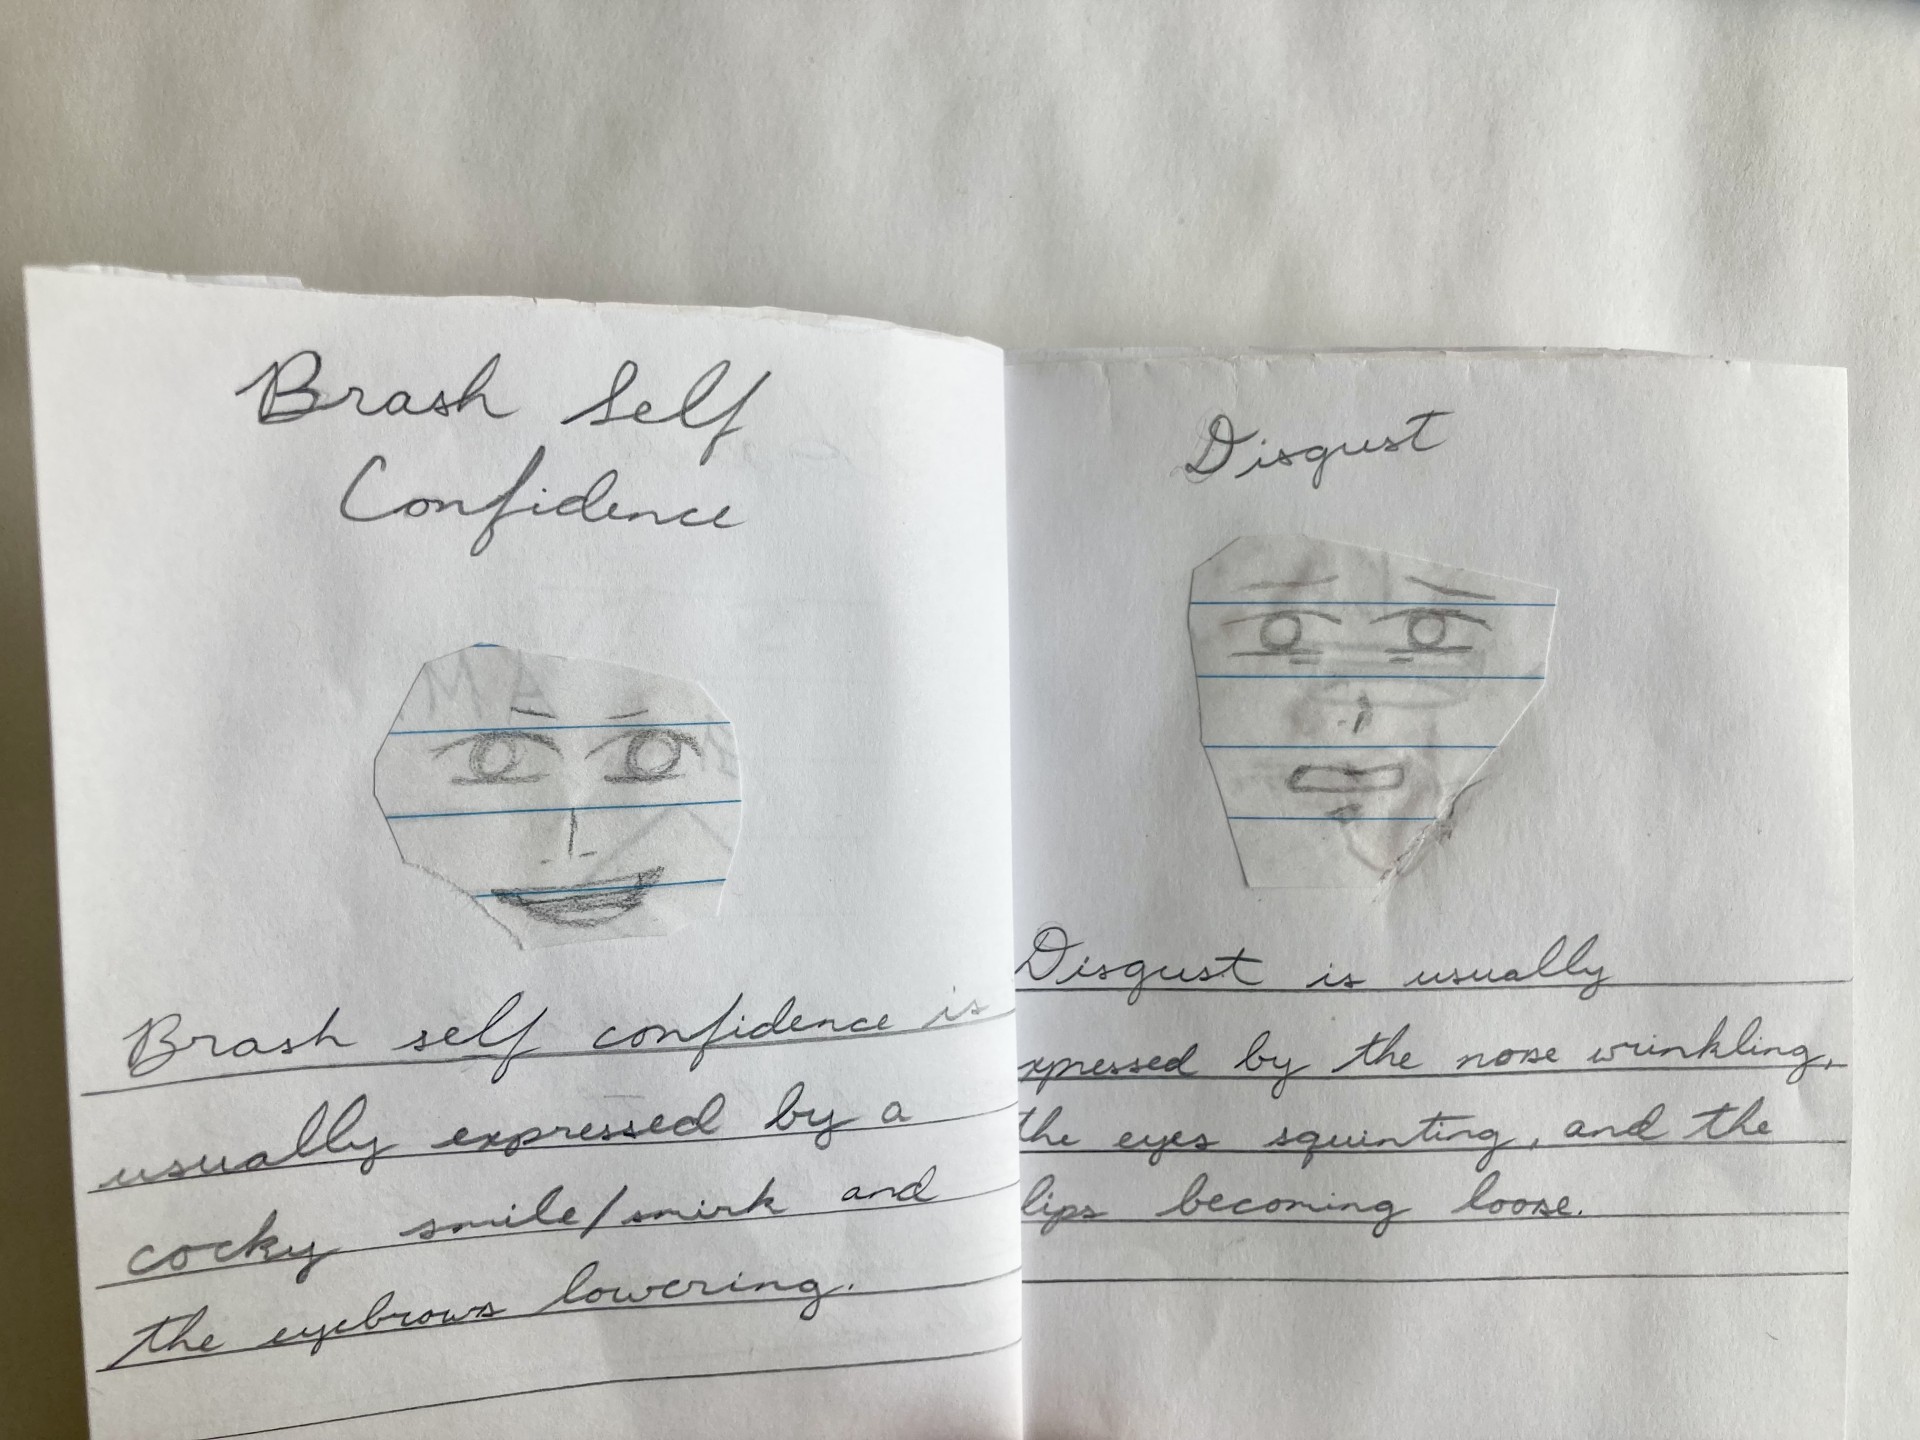 Brash Self
Confidence
Brash self confidence is
usually expressed by a
cocky smile/smirk and
the eyebrows lowering.
Disgust
Disgust is usually
xpressed by the nose wrinkling,
the eyes squinting, and the
lips becoming loose.